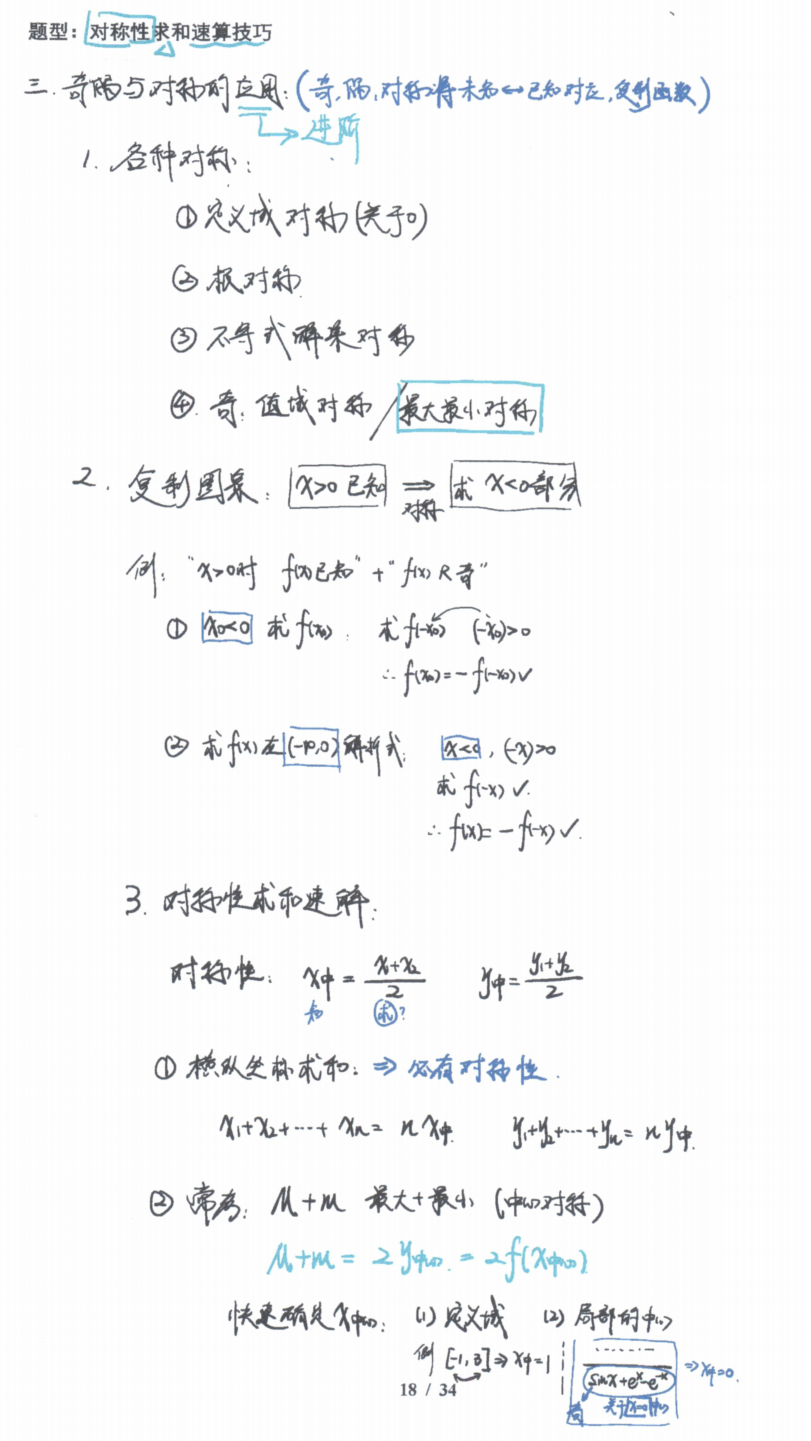 题型：对称性求和速算技巧
三. 奇偶与对称的应用：(奇,偶,对称得未知↔已知对应,复制函数)
→进阶
1. 各种对称：
① 定义域对称(关于0)
② 根对称
③ 不等式解集对称
④. 奇：值域对称 / 最大最小对称
2. 复制图象： x>0 已知 ⇒ 求 x<0部分
对称
例："x>0时 f(x)已知"+"f(x) R奇"
① x₀<0 求 f(x₀)： 求 f(-x₀) (-x₀)>0
∴ f(x₀)=-f(-x₀)✓
② 求f(x)在(-∞,0)解析式： x<0, (-x)>0
求 f(-x) ✓.
∴ f(x)=-f(-x)✓.
3. 对称性求和速解：
对称性： x中 = (x₁+x₂)/2 y中 = (y₁+y₂)/2
知 求?
① 横纵坐标求和：⇒ 必有对称性.
x₁+x₂+⋯+xₙ = n x中. y₁+y₂+⋯+yₙ = n y中.
② 常考：M+m 最大+最小 (中心对称)
M+m = 2y中心. = 2f(x中心)
快速确定x中心： (1) 定义域 (2) 局部的中心
例 [-1,3]⇒x中=1
sinx+eˣ-e⁻ˣ ⇒x中=0.
奇 关于x=0中心
18 / 34